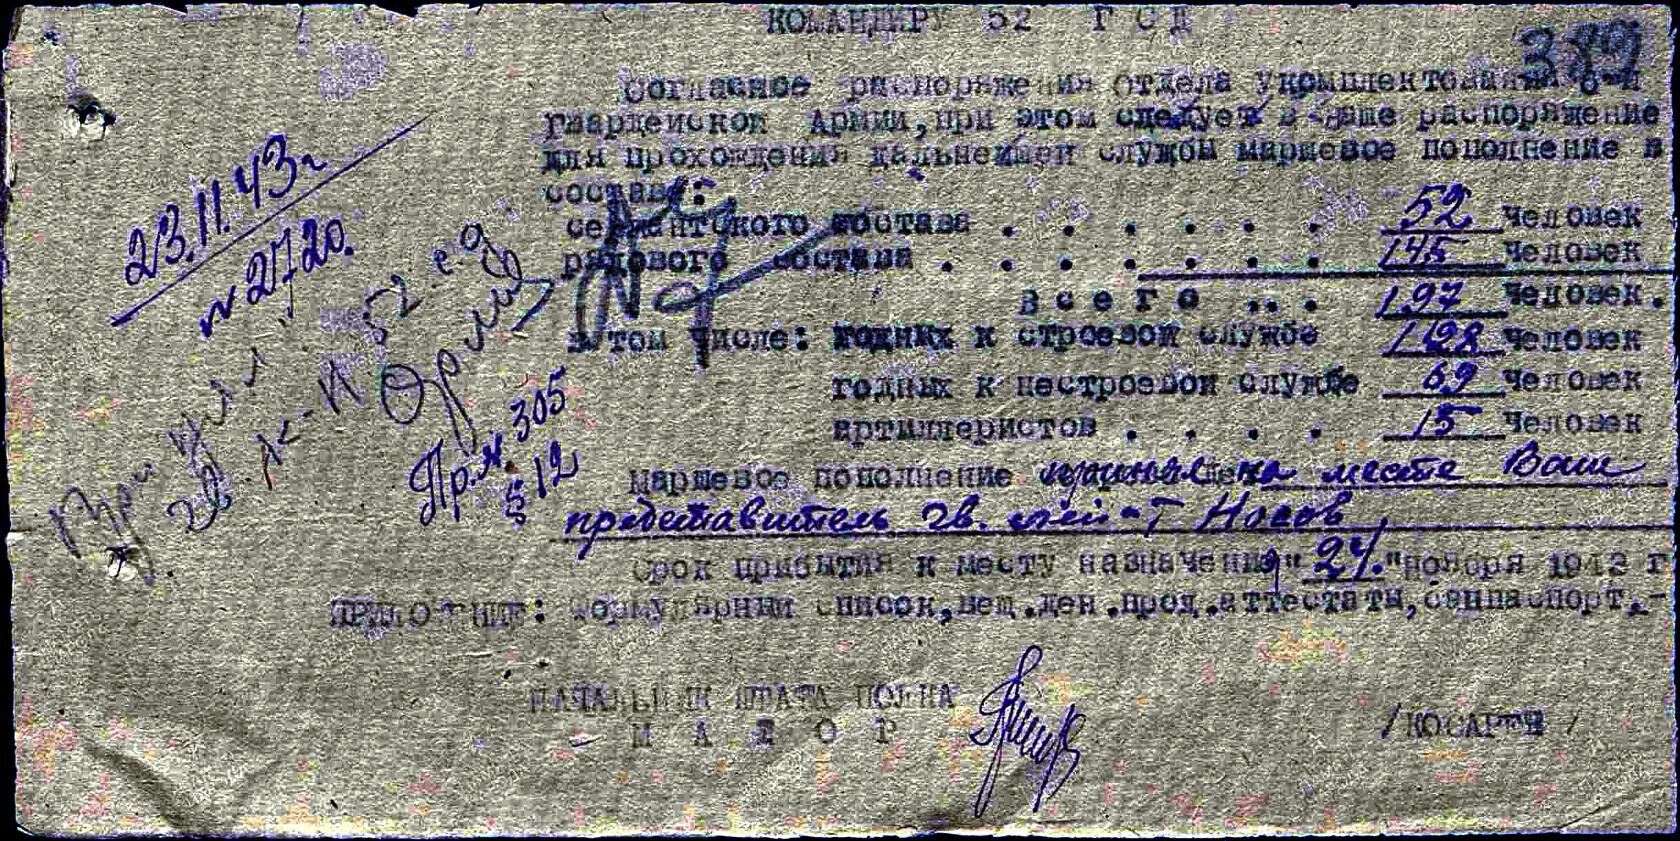 КОМАНДИРУ 52 ГСД
339
Согласное распоряжения отдела укомплектования 6-й
гвардейской Армии, при этом следует в ваше распоряжение
для прохождения дальнейшей службы маршевое пополнение в
составе:
сержантского состава . . . . . . 52 человек
рядового состава . . . . . . . 145 человек
Всего ... 197 человек.
в том числе: годных к строевой службе 128 человек
годных к нестроевой службе 69 человек
артиллеристов . . . . 15 человек
Маршевое пополнение на месте Ваш
представитель гв. лей-т Носов
Срок прибытия к месту назначения "24." ноября 1943 г
ПРИЛОЖЕНИЕ: список, вещ.ден.прод.аттестаты, санпаспорт.-
НАЧАЛЬНИК ШТАБА ПОЛКА
МАЙОР /КОСАРЕВ/
23.11.43г
№ 2720.
52
Пр. № 305
§ 12